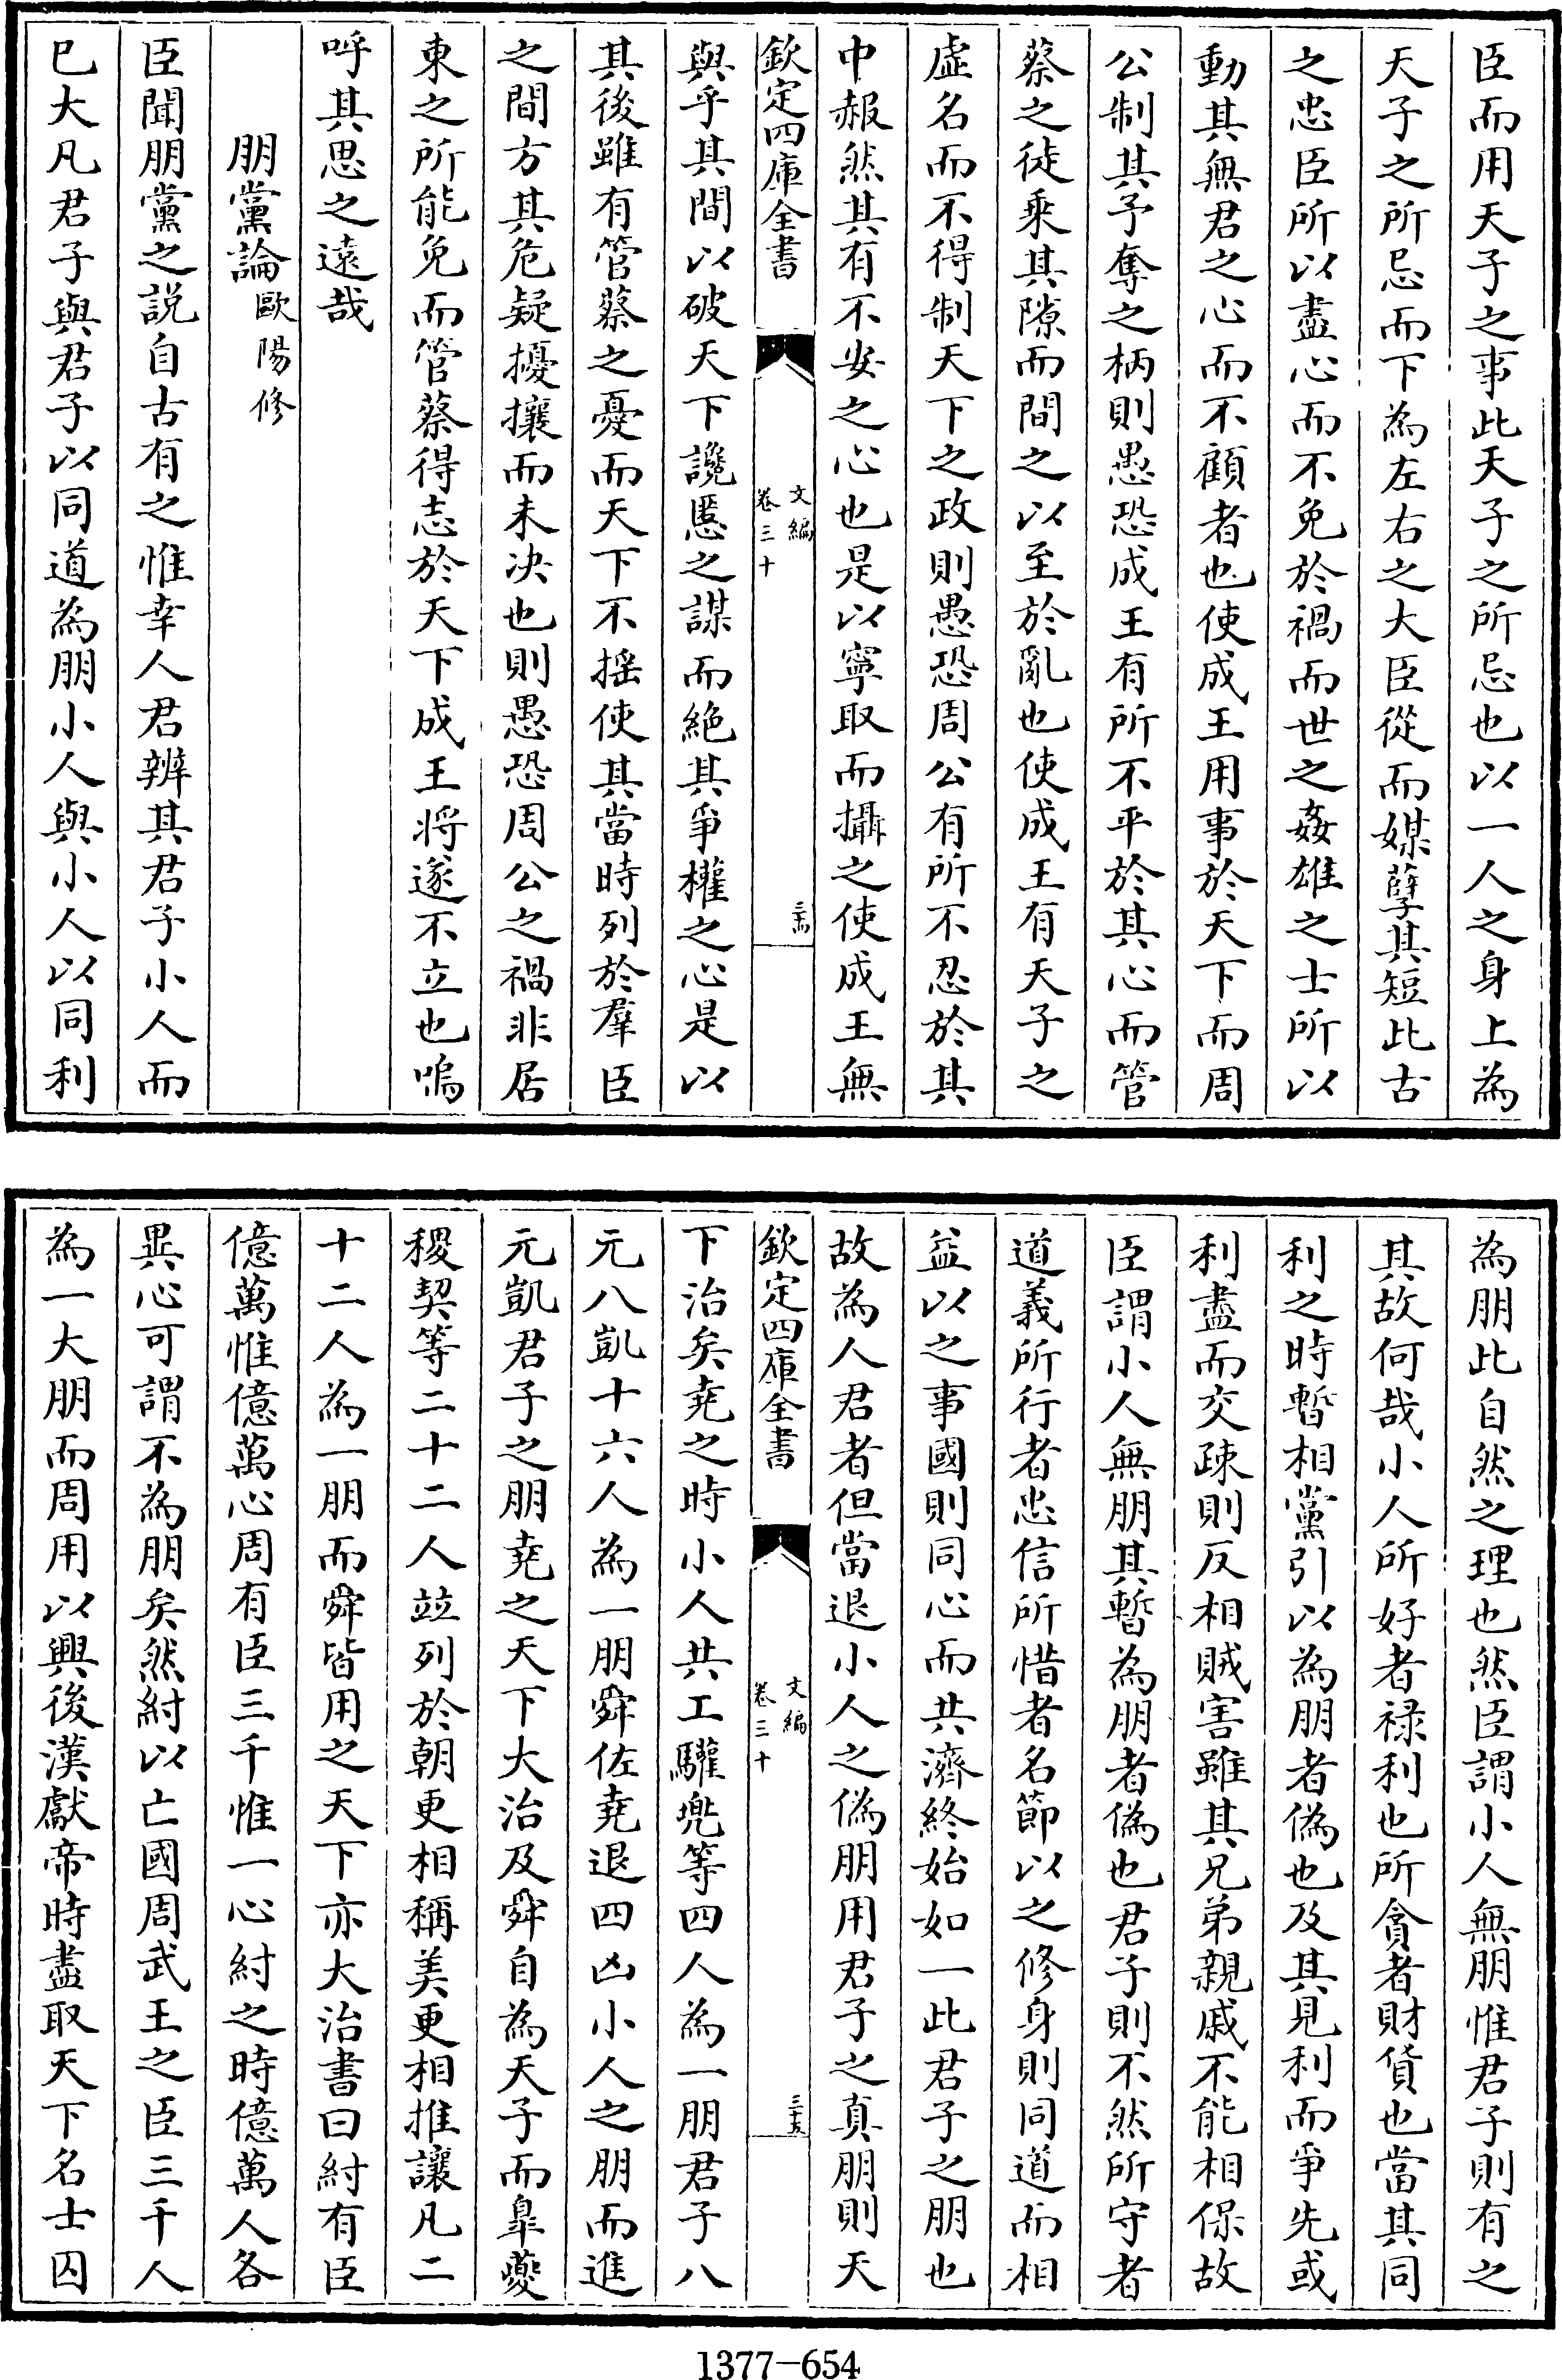 臣而用天子之事此天子之所忌也以一人之身上為
天子之所忌而下為左右之大臣從而媒孽其短此古
之忠臣所以盡心而不免於禍而世之姦雄之士所以
動其無君之心而不顧者也使成王用事於天下而周
公制其予奪之柄則愚恐成王有所不平於其心而管
蔡之徒乘其隙而間之以至於亂也使成王有天子之
虛名而不得制天下之政則愚恐周公有所不忍於其
中赧然其有不安之心也是以寧取而攝之使成王無
欽定四庫全書
文編
卷三十
三十四
與乎其間以破天下讒慝之謀而絶其爭權之心是以
其後雖有管蔡之憂而天下不揺使其當時列於羣臣
之間方其危疑擾攘而未决也則愚恐周公之禍非居
東之所能免而管蔡得志於天下成王将遂不立也嗚
呼其思之遠哉
朋黨論歐陽修
臣聞朋黨之説自古有之惟幸人君辨其君子小人而
已大凡君子與君子以同道為朋小人與小人以同利
為朋此自然之理也然臣謂小人無朋惟君子則有之
其故何哉小人所好者禄利也所貪者財貨也當其同
利之時暫相黨引以為朋者偽也及其見利而爭先或
利盡而交疎則反相賊害雖其兄弟親戚不能相保故
臣謂小人無朋其暫為朋者偽也君子則不然所守者
道義所行者忠信所惜者名節以之修身則同道而相
益以之事國則同心而共濟終始如一此君子之朋也
故為人君者但當退小人之偽朋用君子之真朋則天
欽定四庫全書
文編
卷三十
三十五
下治矣堯之時小人共工驩兜等四人為一朋君子八
元八凱十六人為一朋舜佐堯退四凶小人之朋而進
元凱君子之朋堯之天下大治及舜自為天子而臯夔
稷契等二十二人竝列於朝更相稱美更相推讓凡二
十二人為一朋而舜皆用之天下亦大治書曰紂有臣
億萬惟億萬心周有臣三千惟一心紂之時億萬人各
異心可謂不為朋矣然紂以亡國周武王之臣三千人
為一大朋而周用以興後漢獻帝時盡取天下名士囚
1377-654